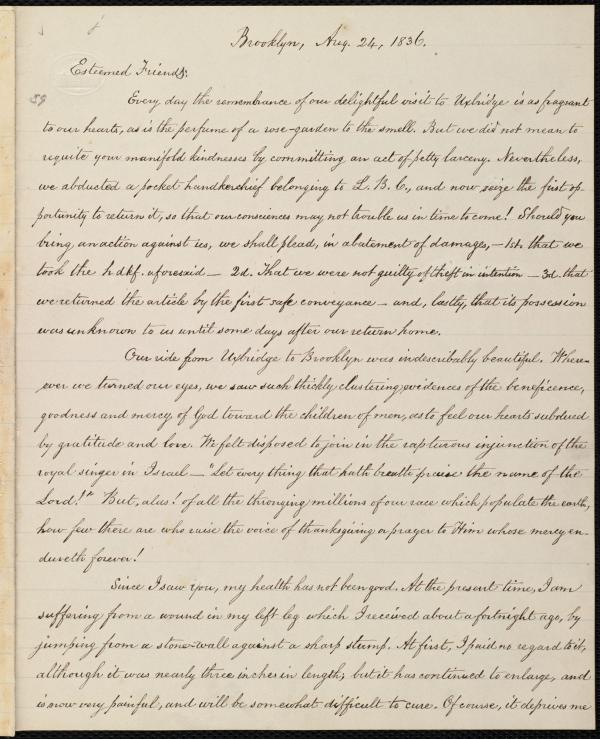 Brooklyn, Aug. 24, 1836.
Esteemed Friends:
59
Every day the remembrance of our delightful visit to Uxbridge is as fragrant
to our hearts, as is the perfume of a rose-garden to the smell. But we did not mean to
requite your manifold kindnesses by committing an act of petty larceny. Nevertheless,
we abducted a pocket handkerchief belonging to L. B. C., and now seize the fist op-
portunity to return it, so that our consciences may not trouble us in time to come! Should you
bring an action against us, we shall plead, in abatement of damages, — 1st. that we
took the hdkf. aforesaid — 2d. That we were not guilty of theft in intention — 3d. that
we returned the article by the first safe conveyance — and, lastly, that its possession
was unknown to us until some days after our return home.
Our ride from Uxbridge to Brooklyn was indescribably beautiful. Where-
ever we turned our eyes, we saw such thickly clustering evidences of the beneficence,
goodness and mercy of God toward the children of men, as to feel our hearts subdued
by gratitude and love. We felt disposed to join in the rapturous injunction of the
royal singer in Israel — "Let every thing that hath breath praise the name of the
Lord!" But, alas! of all the thronging millions of our race which populate the earth,
how few there are who raise the voice of thanksgiving or prayer to Him whose mercy en-
dureth forever!
Since I saw you, my health has not been good. At the present time, I am
suffering from a wound in my left leg which I received about a fortnight ago, by
jumping from a stone-wall against a sharp stump. At first, I paid no regard to it,
although it was nearly three inches in length; but it has continued to enlarge, and
is now very painful, and will be somewhat difficult to cure. Of course, it deprives me